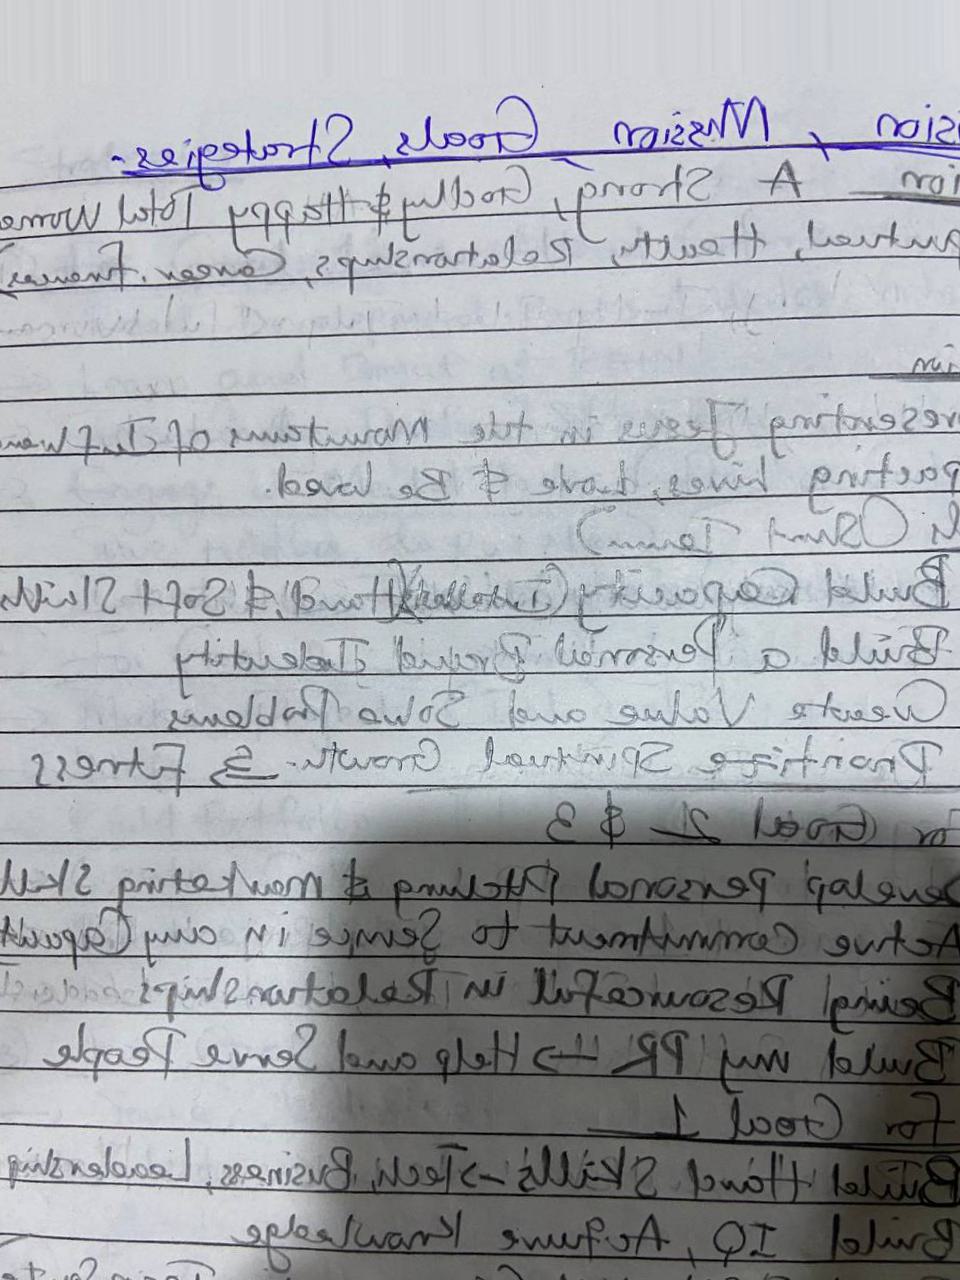 ision, Mission, Goals, Strategies.
ion A Strong, Godly & Happy Total Wome
piritual, Health, Relationships, Career, Finances
ion
presenting Jesus in the Mountains of Influen
pacting Lives, Love & Be loved.
ls (Short Term)
Build Capacity (Intellect) Hard, & Soft Skills
Build a Personal Brand Identity
Create Value and Solve Problems
Prioritize Spiritual Growth. & Fitness
for Goal 2 & 3
Develop Personal Pitching & Marketing Skill
Active Commitment to Service in any Capacit
Being Resourceful in Relationships
Build my PR → Help and Serve People
For Goal 1
Build Hard Skills → Tech, Business, Leadership
Build IQ, Acquire Knowledge